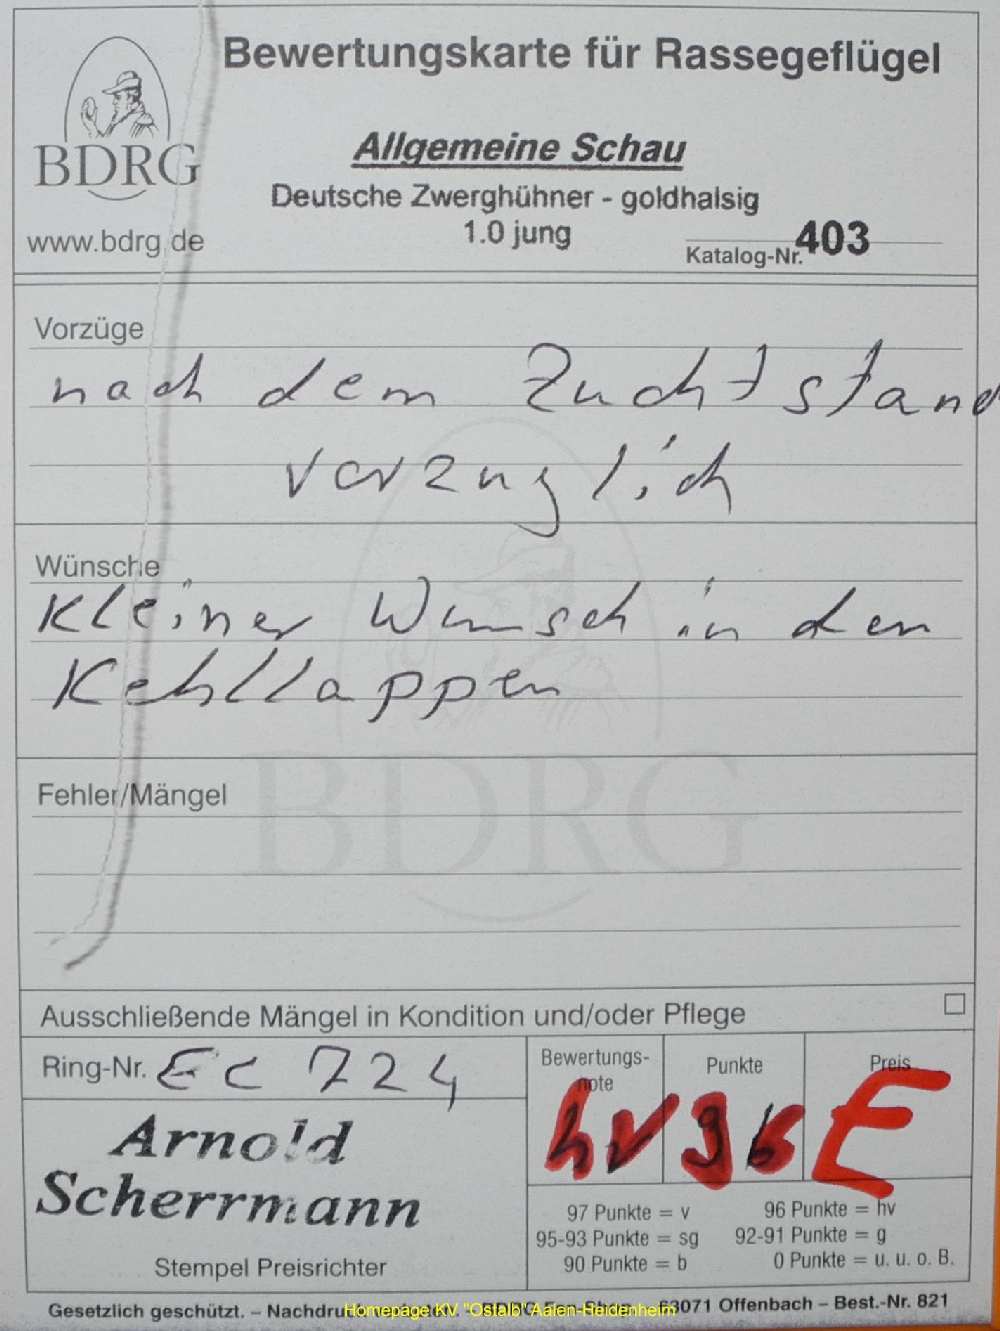 Bewertungskarte für Rassegeflügel
BDRG
www.bdrg.de
Allgemeine Schau
Deutsche Zwerghühner - goldhalsig
1.0 jung
Katalog-Nr. 403
Vorzüge
nach dem Zuchtstand
vorzuglich
Wünsche
Kleiner Wunsch in den
Kehllappen
BDRG
Fehler/Mängel
Ausschließende Mängel in Kondition und/oder Pflege
Ring-Nr. EC 724
Bewertungs-
note
Punkte
Preis
hv 96 E
Arnold
Scherrmann
Stempel Preisrichter
97 Punkte = v 96 Punkte = hv
95-93 Punkte = sg 92-91 Punkte = g
90 Punkte = b 0 Punkte = u. u. o. B.
Gesetzlich geschützt. – 63071 Offenbach – Best.-Nr. 821
Homepage KV "Ostalb" Aalen-Heidenheim